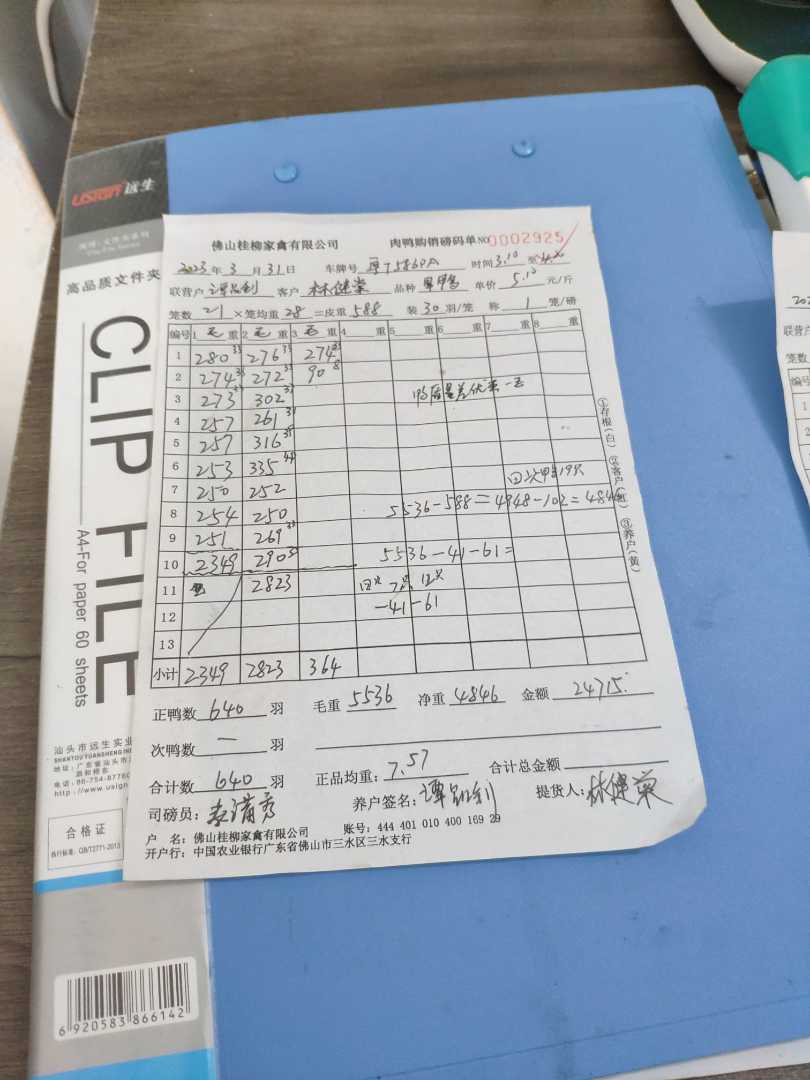 USIGN 远生
高品质文件夹
CLIP FILE
A4-For paper 60 sheets
汕头市远生实业
SHANTOU YUANSHENG INDU
http://www.usign
合格证
执行标准: QB/T2771-2013
6 920583 866142
佛山桂柳家禽有限公司 肉鸭购销磅码单 NO 0002925
2023年 3 月 31 日 车牌号 时间 3.10 至
联营户 客户 林健荣 品种 单价 5.10 元/斤
笼数 21 ×笼均重 28 =皮重 588 装 30 羽/笼 称 1 笼/磅
编号 1 毛 重 2 毛 重 3 毛 重 4 重 5 重 6 重 7 重 8 重
1 280 276 274
2 274 272 90
3 273 302
4 257 261
5 257 316
6 253 335
7 250 252
8 254 250 5536-588=4948-102=4846
9 251 269
10 2349 290 5536-41-61=
11 2823 12只 7只 12只
12 -41-61
13
小计 2349 2823 364
①存根(白) ②客户(红) ③养户(黄)
正鸭数 640 羽 毛重 5536 净重 4846 金额 24715
次鸭数 一 羽
合计数 640 羽 正品均重: 7.57 合计总金额
司磅员: 养户签名: 提货人: 林健荣
户 名: 佛山桂柳家禽有限公司 账号: 444 401 010 400 169 29
开户行: 中国农业银行广东省佛山市三水区三水支行